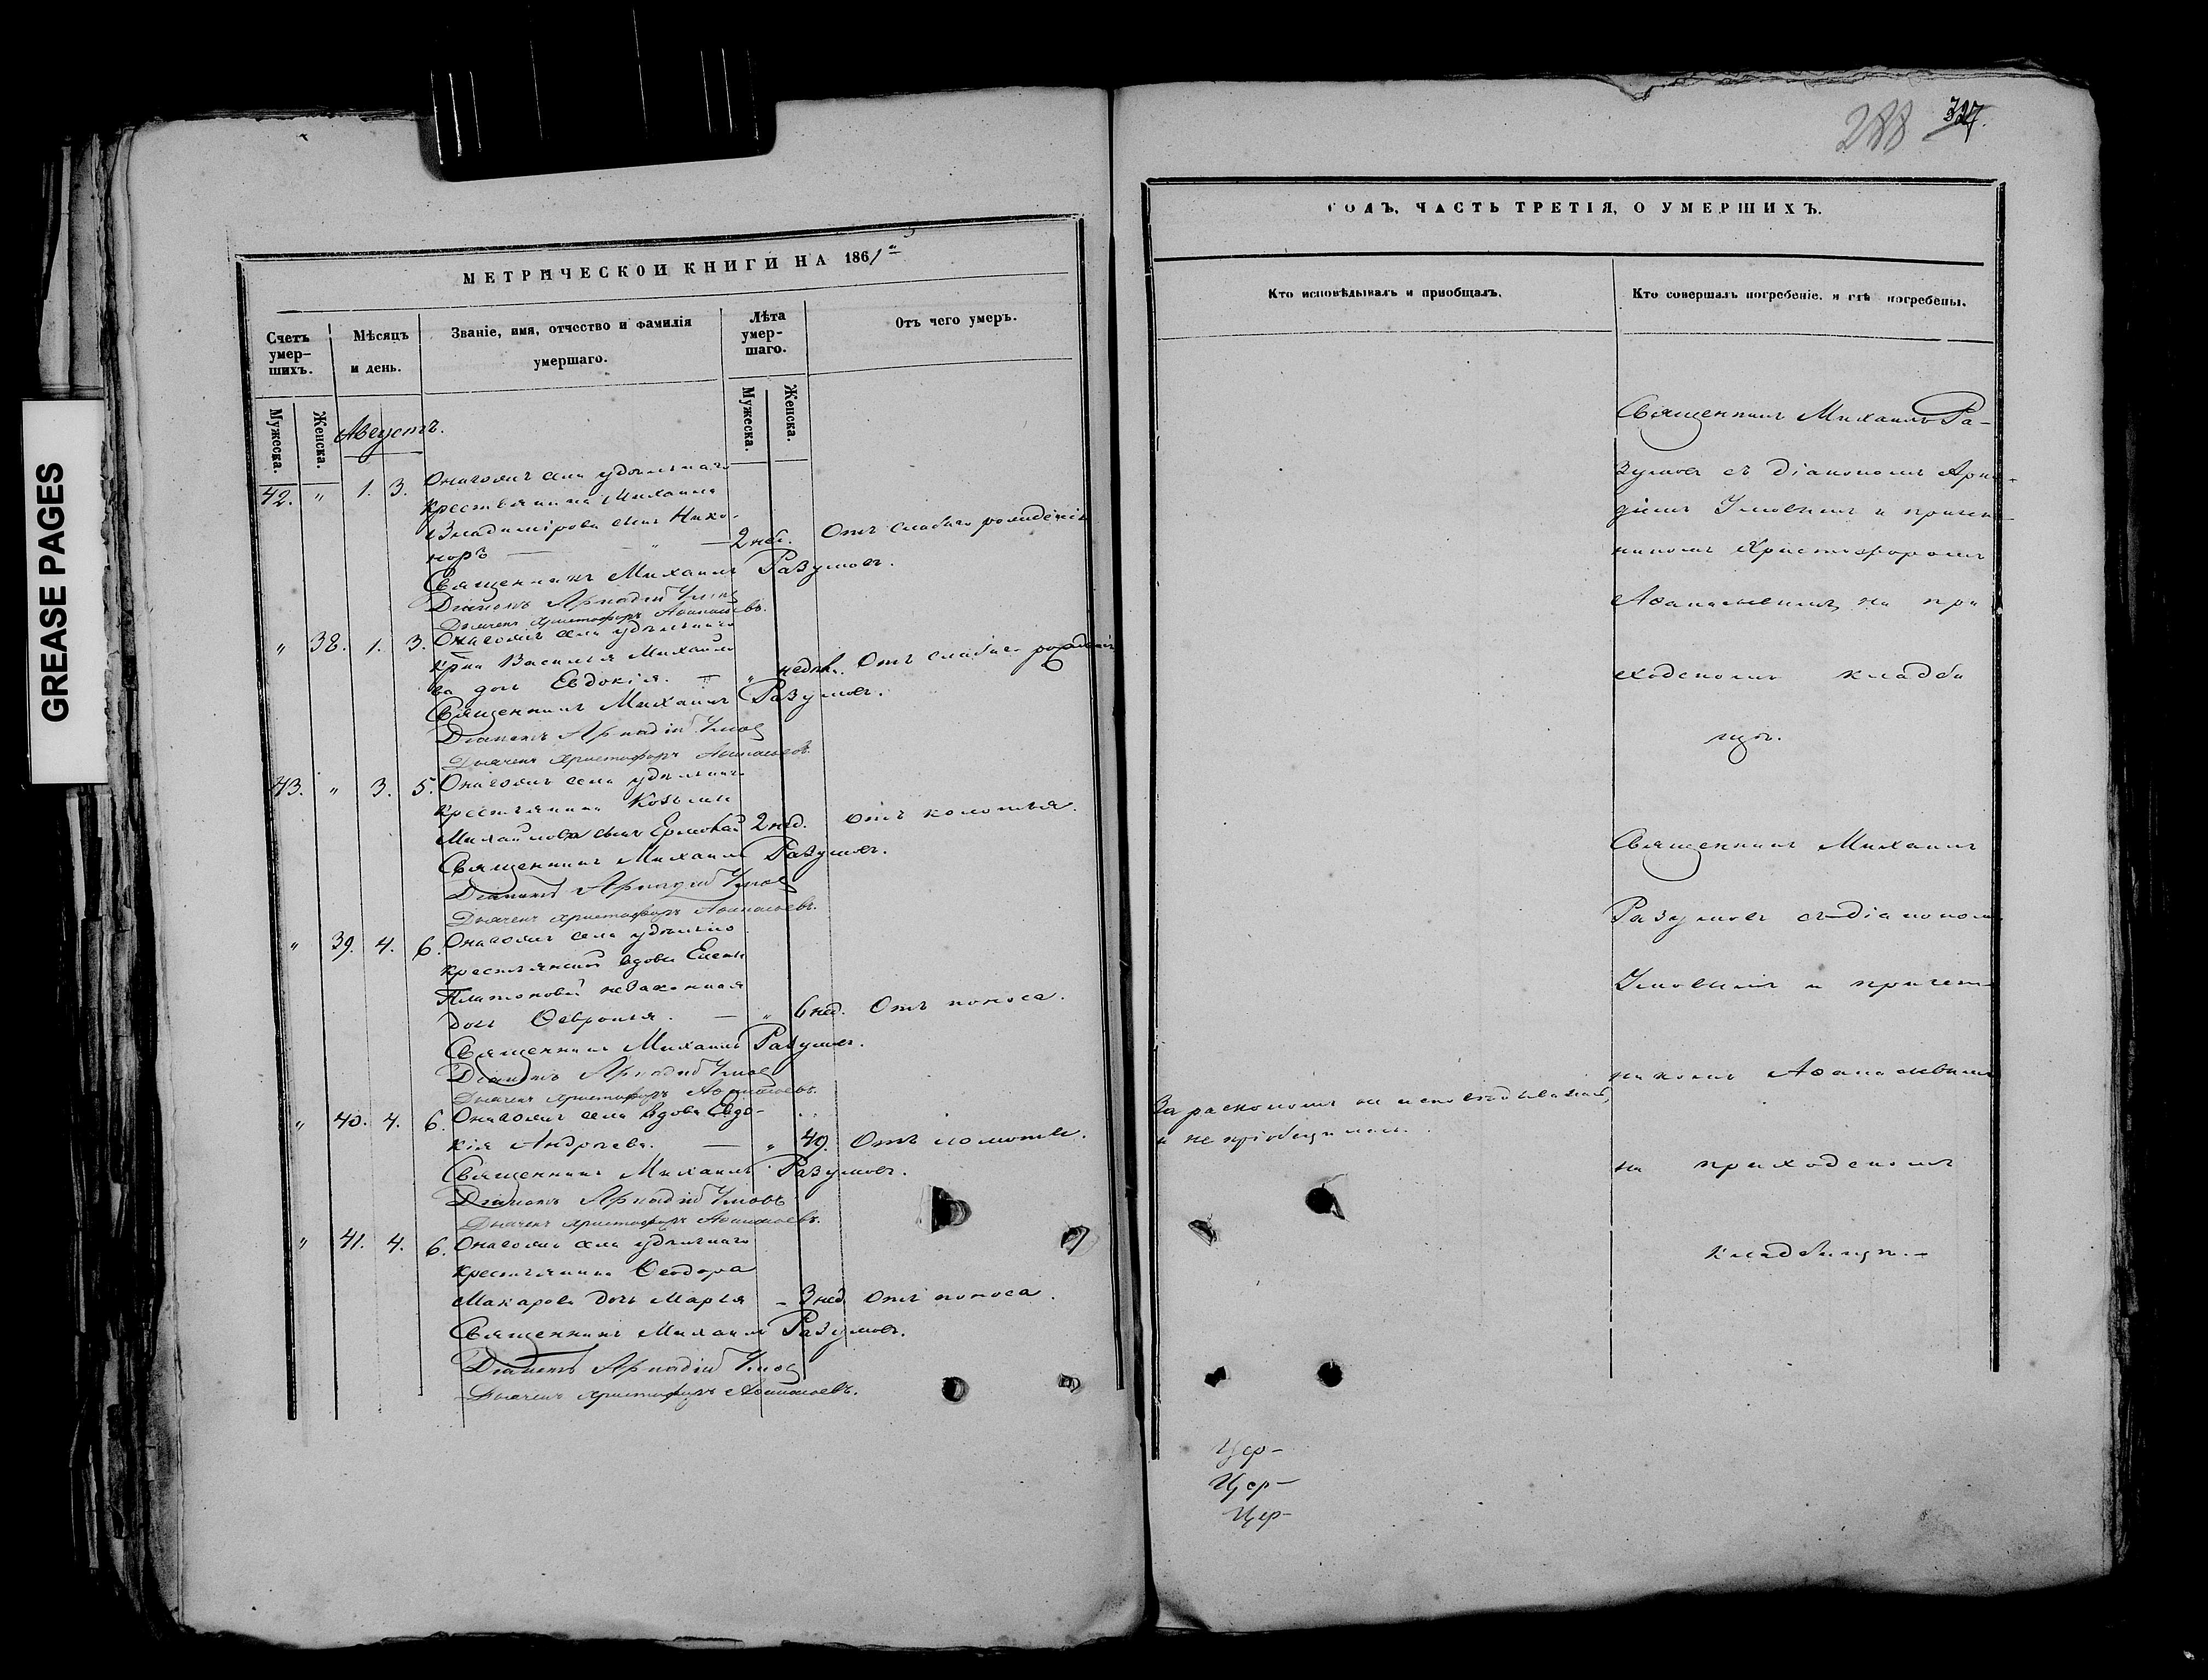 GREASE PAGES
МЕТРИЧЕСКОЙ КНИГИ НА 1861
Счетъ умер-шихъ.
Мужеска.
Женска.
Мѣсяцъ и день.
Званіе, имя, отчество и фамилія умершаго.
Лѣта умер-шаго.
Мужеска.
Женска.
Отъ чего умеръ.
Августъ.
42. " 1. 3. Онагожъ села удѣльнаго
крестьянина Михаила
Владимірова сынъ Нико-
норъ — " — 2 нед. Отъ слабаго рожденія
Священникъ Михаилъ Разумовъ.
Діаконъ Аркадій Умовъ
Дьячекъ Христофоръ Аѳанасьевъ.
" 38. 1. 3. Онагожъ села удѣльнаго
Василья Михайло
ва дочь Евдокія. — " недѣл. Отъ слабаго рожденія
Священникъ Михаилъ Разумовъ.
Діаконъ Аркадій Умовъ
Дьячекъ Христофоръ Аѳанасьевъ.
43. " 3. 5. Онагожъ села удѣльнаго
крестьянина Козьмы
Михайлова сынъ Ермолай 2 нед. отъ колотья.
Священникъ Михаилъ Разумовъ.
Діаконъ Аркадій Умовъ
Дьячекъ Христофоръ Аѳанасьевъ.
" 39. 4. 6. Онагожъ села удѣльно
крестьянской вдовы Елены
Платоновой незаконная
дочь Ѳевронья. — " 6 нед. Отъ поноса.
Священникъ Михаилъ Разумовъ.
Діаконъ Аркадій Умовъ
Дьячекъ Христофоръ Аѳанасьевъ.
" 40. 4. 6. Онагожъ села вдова Евдо-
кія Андреева. — " 49. Отъ
Священникъ Михаилъ Разумовъ.
Діаконъ Аркадій Умовъ
Дьячекъ Христофоръ Аѳанасьевъ.
" 41. 4. 6. Онагожъ села удѣльнаго
крестьянина Ѳеодора
Макарова дочь Марья - 3 нед. Отъ поноса.
Священникъ Михаилъ Разумовъ.
Діаконъ Аркадій Умовъ
Дьячекъ Христофоръ Аѳанасьевъ.
288 327.
ГОДЪ, ЧАСТЬ ТРЕТІЯ, О УМЕРШИХЪ.
Кто исповѣдывалъ и пріобщалъ.
Кто совершалъ погребеніе, и гдѣ погребены.
За расколомъ не исповѣдывалась,
и не пріобщалась.
Священникъ Михаилъ Ра-
зумовъ съ діакономъ Арка-
діемъ Умовымъ и причет-
никомъ Христофоромъ
Аѳанасьевымъ на при
ходскомъ кладби
щѣ.
Священникъ Михаилъ
Разумовъ съ діакономъ
Умовымъ и причет-
никомъ Аѳанасьевымъ
на приходскомъ
кладбищѣ.-
Цер-
Цер-
Цер-